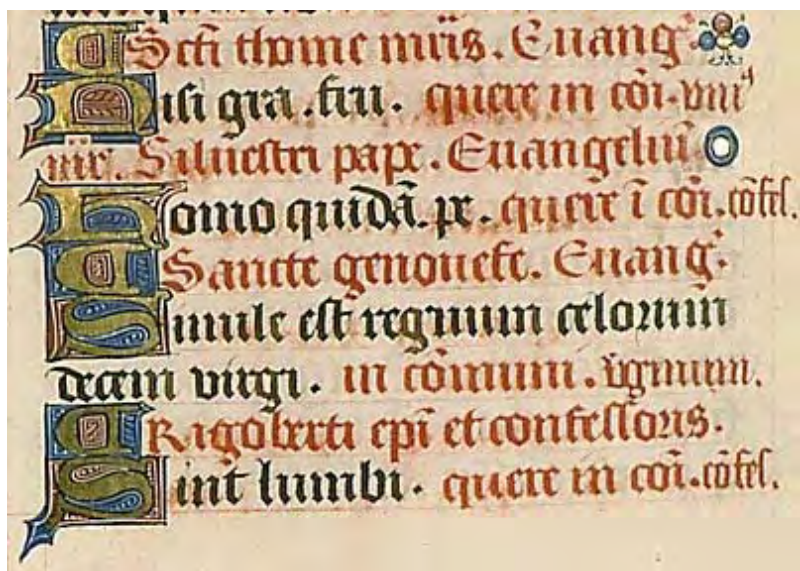 Scti thome mris. Euang.
Nisi gra. fru. quere in coi. vni
mr. Siluestri pape. Euangeliu
homo quidā. pe. quere ī coi. cōfes.
Sancte genouefe. Euang.
Simile est regnum celorum
decem virgi. in cōmuni. virginum.
Rigoberti epi et confessoris.
Sint lumbi. quere in coi. cōfes.